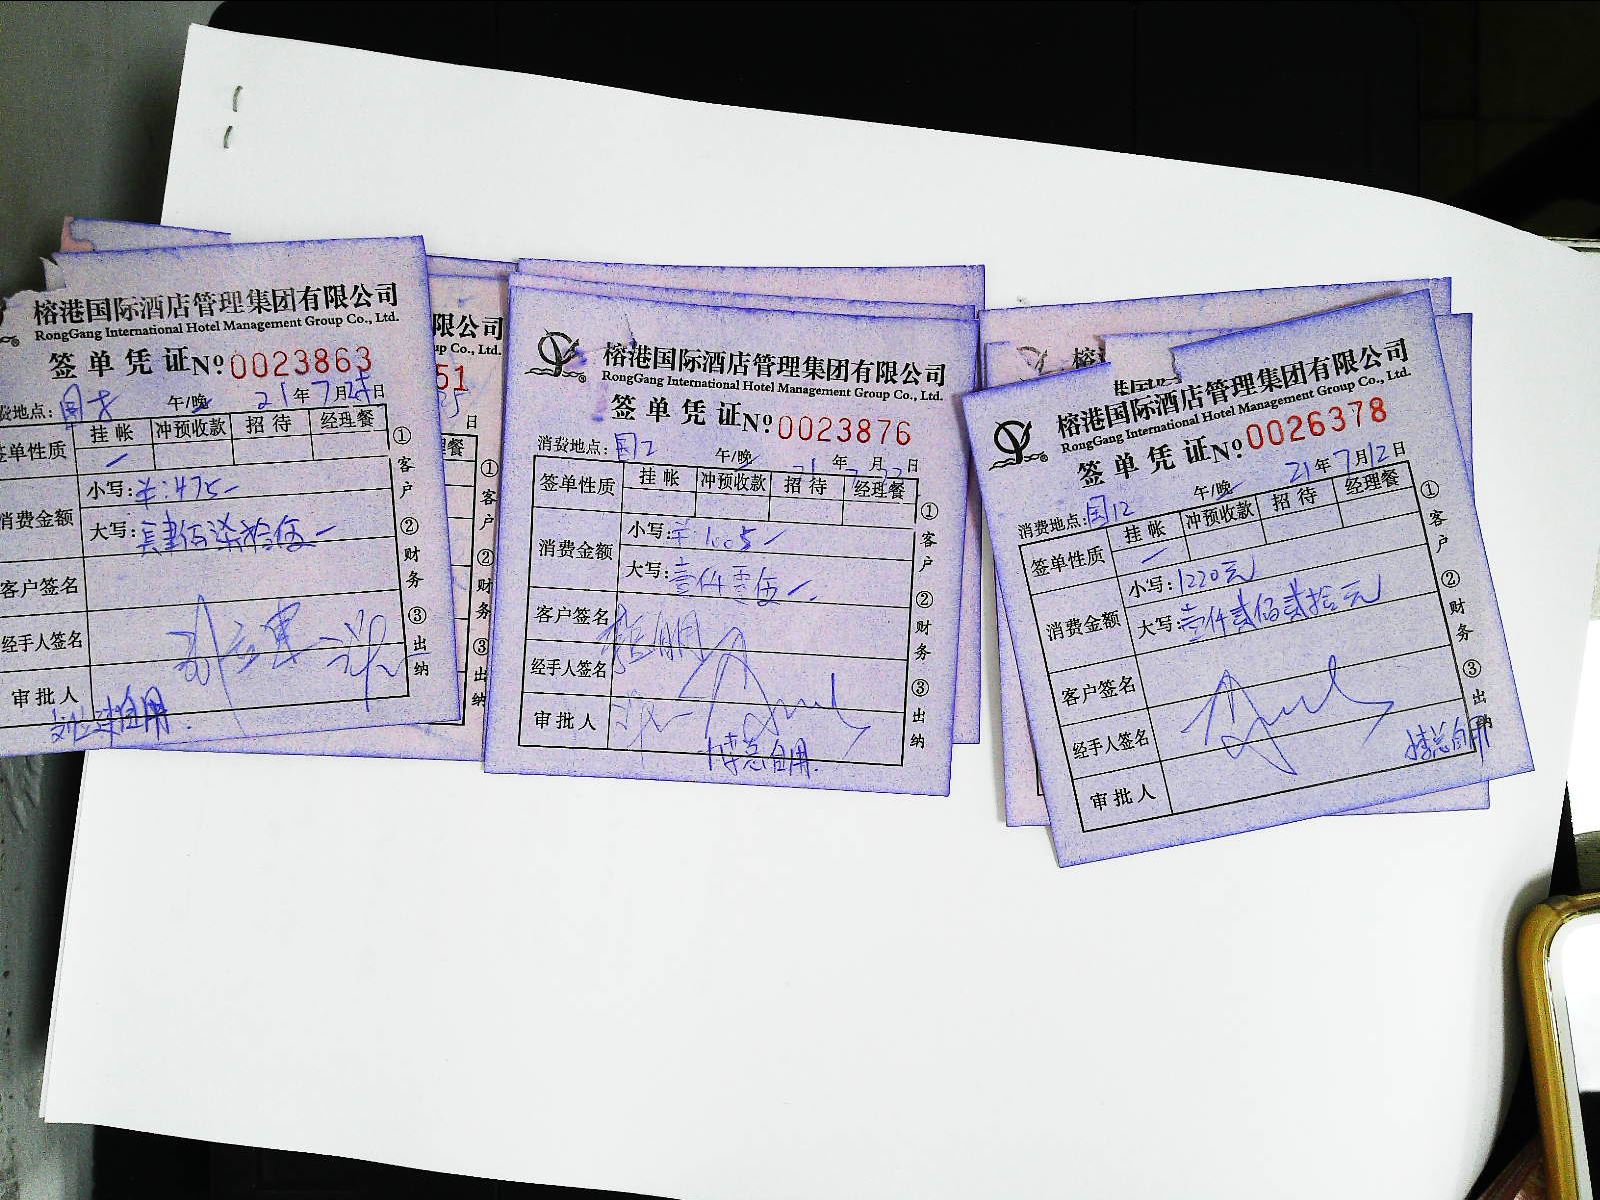 榕港国际酒店管理集团有限公司
RongGang International Hotel Management Group Co., Ltd.
签单凭证 No 0023863
费地点: 午/晚 21年7月 日
签单性质 挂帐 冲预收款 招待 经理餐
消费金额 小写: ¥:475-
大写: 肆佰柒拾伍
客户签名
经手人签名
审批人
自用
①客户 ②财务 ③出纳
限公司
up Co., Ltd.
51
日
理餐
①客户 ②财务 ③出纳
榕港国际酒店管理集团有限公司
RongGang International Hotel Management Group Co., Ltd.
签单凭证 No 0023876
消费地点: 国2 午/晚 21年7月22日
签单性质 挂帐 冲预收款 招待 经理餐
消费金额 小写: ¥:1005
大写: 壹仟零伍
客户签名
经手人签名
审批人
李总自用
①客户 ②财务 ③出纳
榕
榕港国际
榕港国际酒店管理集团有限公司
RongGang International Hotel Management Group Co., Ltd.
签单凭证 No 0026378
消费地点: 国12 午/晚 21年7月12日
签单性质 挂帐 冲预收款 招待 经理餐
消费金额 小写: 1220元
大写: 壹仟贰佰贰拾元
客户签名
经手人签名
审批人
李总自用
①客户 ②财务 ③出纳